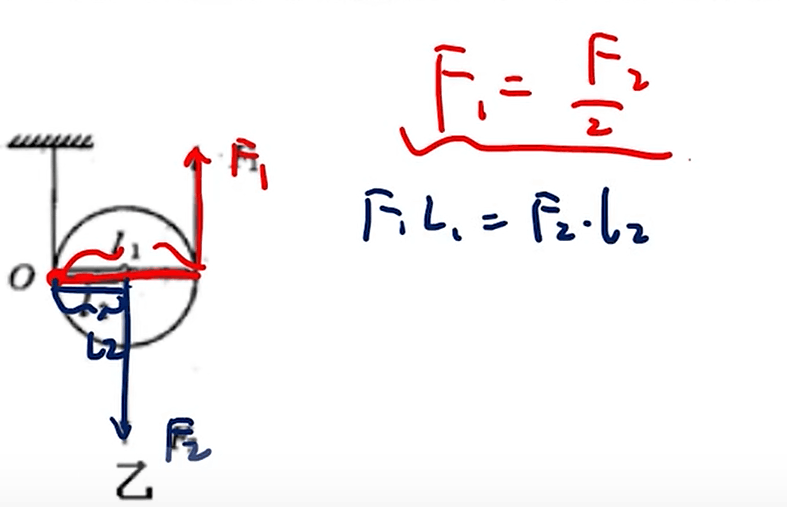 F₁ = F₂/2
F₁L₁ = F₂·l₂
F₁
l₁
O
L₂
F₂
乙